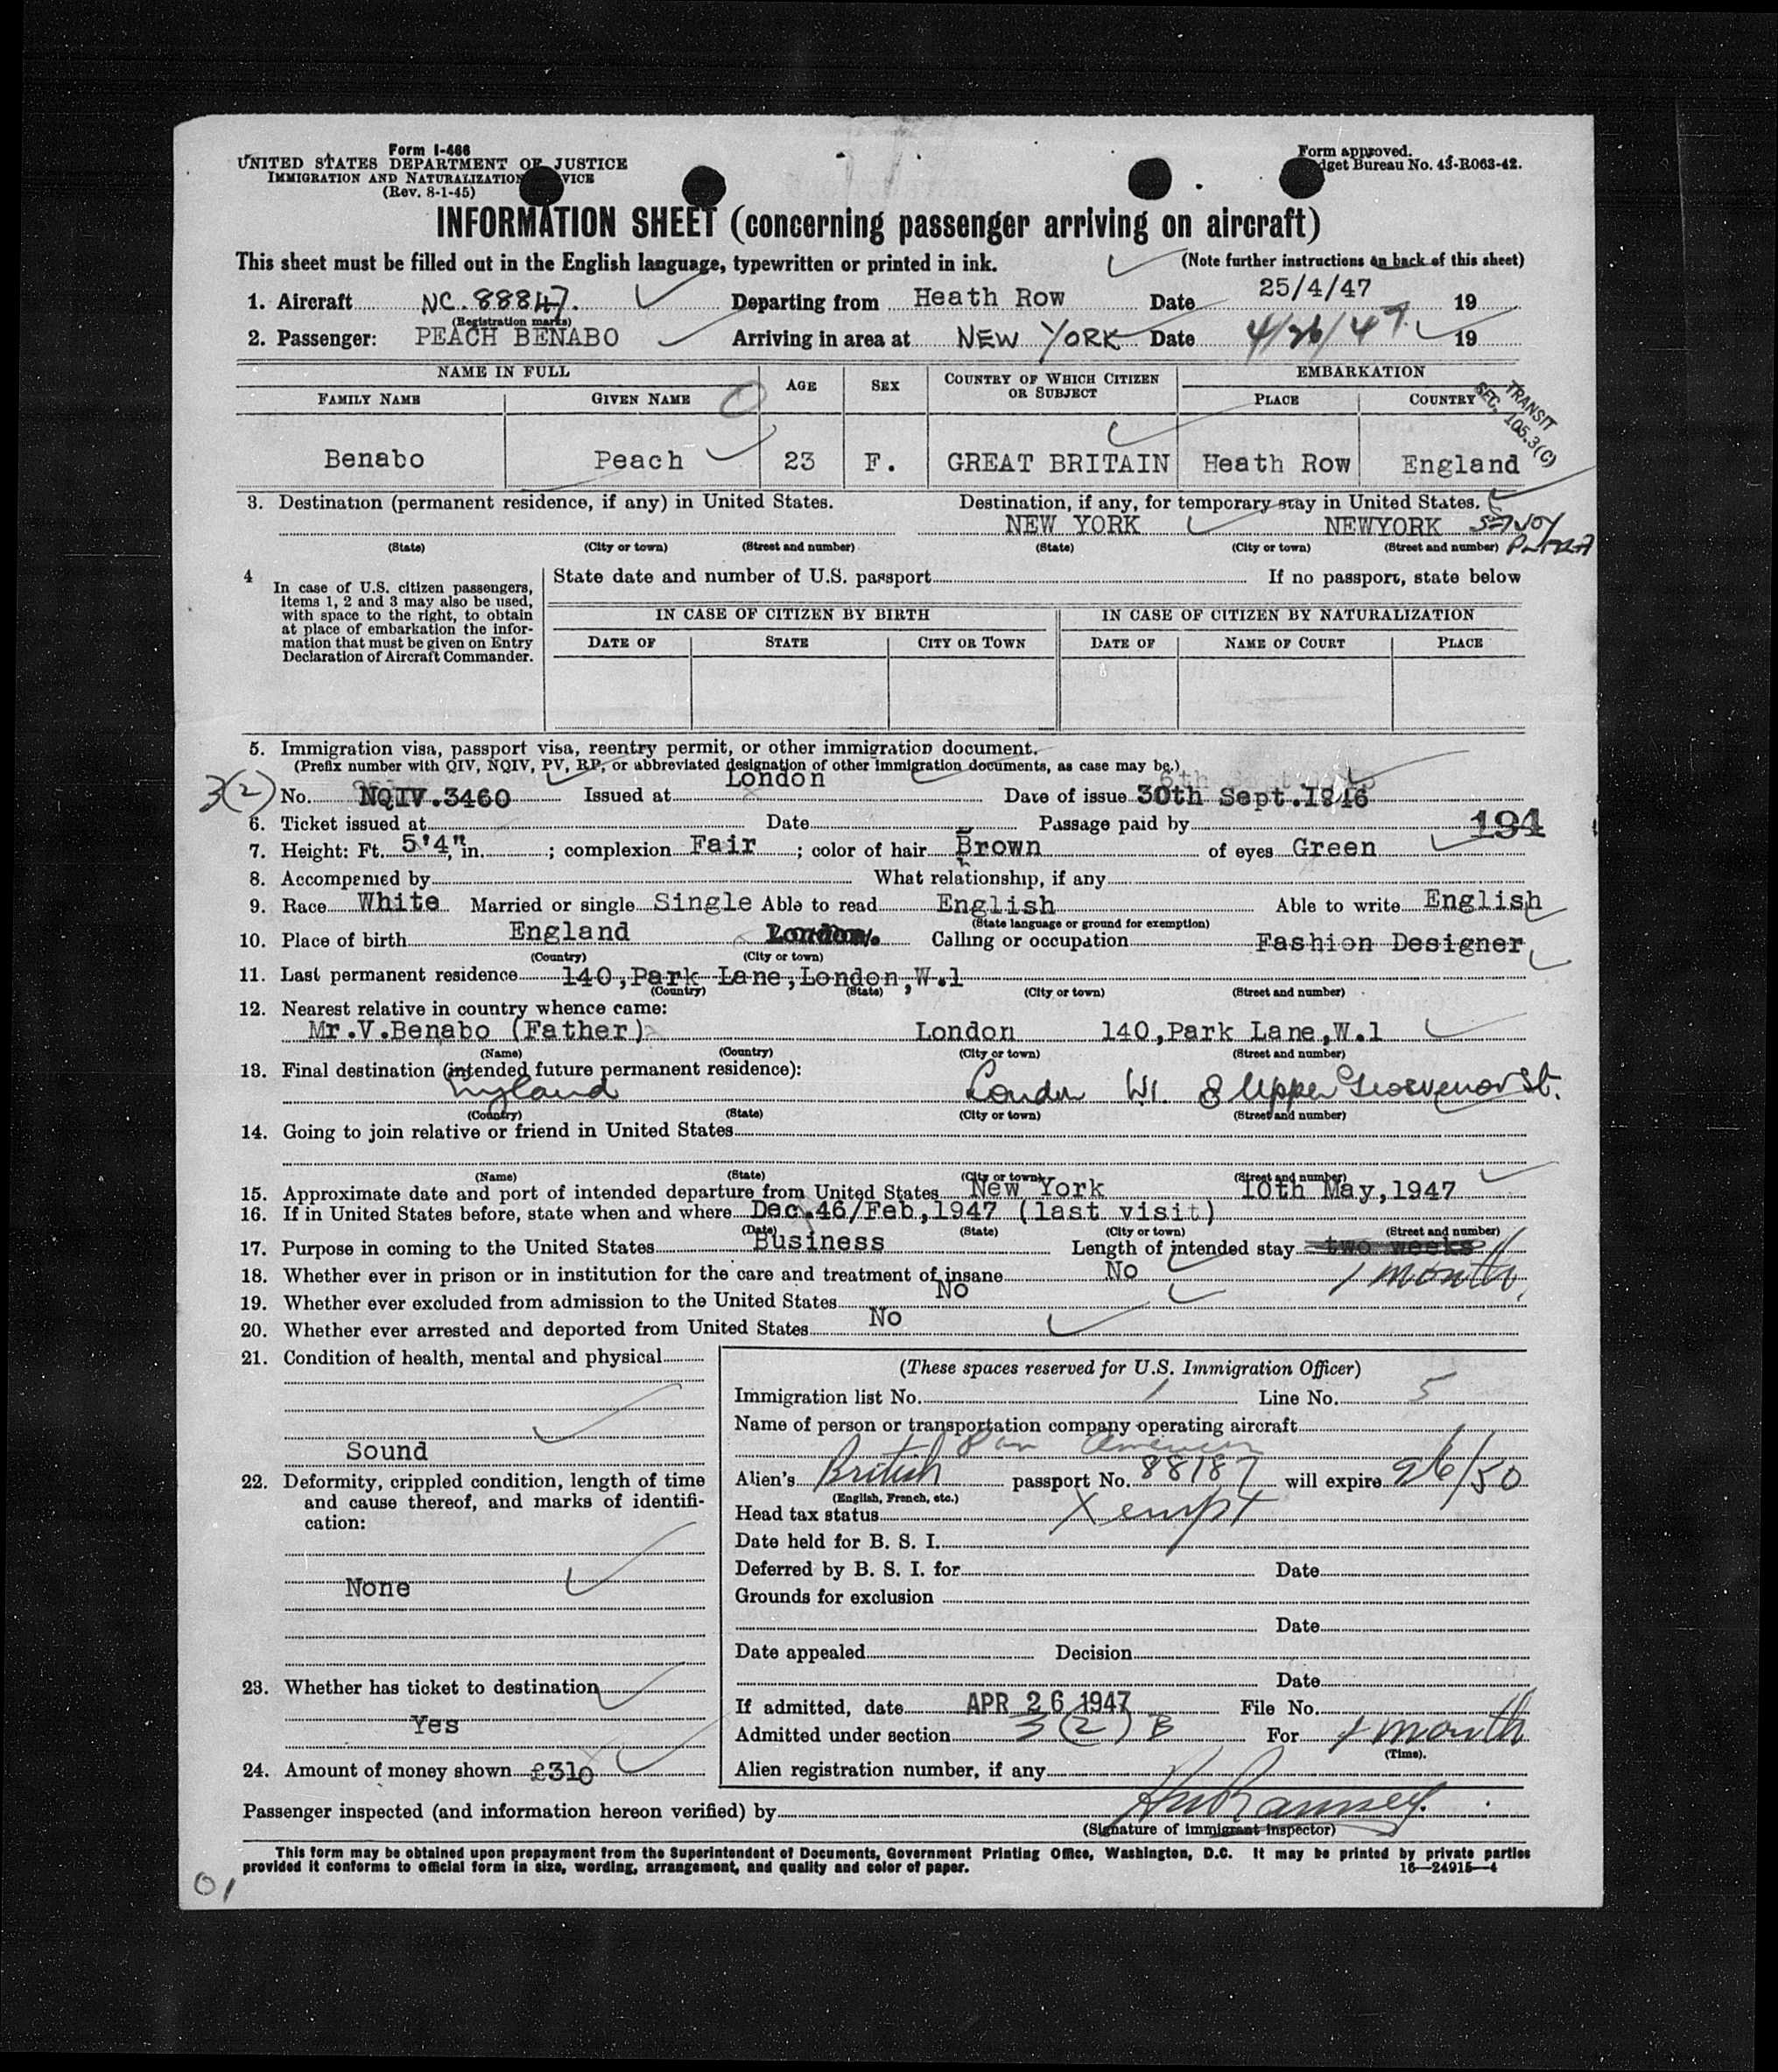 Form I-466
UNITED STATES DEPARTMENT OF JUSTICE
IMMIGRATION AND NATURALIZATION VICE
(Rev. 8-1-45)
Form approved.
dget Bureau No. 43-R063-42.
INFORMATION SHEET (concerning passenger arriving on aircraft)
This sheet must be filled out in the English language, typewritten or printed in ink. (Note further instructions on back of this sheet)
1. Aircraft NC. 88847. Departing from Heath Row Date 25/4/47 19
(Registration marks)
2. Passenger: PEACH BENABO Arriving in area at NEW YORK Date 4/26/47 19
NAME IN FULL AGE SEX COUNTRY OF WHICH CITIZEN OR SUBJECT EMBARKATION
FAMILY NAME GIVEN NAME PLACE COUNTRY
TRANSIT
SEC. 105.3(C)
Benabo Peach 23 F. GREAT BRITAIN Heath Row England
3. Destination (permanent residence, if any) in United States. Destination, if any, for temporary stay in United States.
NEW YORK NEWYORK SAVOY PLAZA
(State) (City or town) (Street and number) (State) (City or town) (Street and number)
4 In case of U.S. citizen passengers, items 1, 2 and 3 may also be used, with space to the right, to obtain at place of embarkation the information that must be given on Entry Declaration of Aircraft Commander.
State date and number of U.S. passport If no passport, state below
IN CASE OF CITIZEN BY BIRTH IN CASE OF CITIZEN BY NATURALIZATION
DATE OF STATE CITY OR TOWN DATE OF NAME OF COURT PLACE
5. Immigration visa, passport visa, reentry permit, or other immigration document.
(Prefix number with QIV, NQIV, PV, RP, or abbreviated designation of other immigration documents, as case may be.)
3(2) No. NQIV.3460 Issued at London Date of issue 30th Sept.1946
6. Ticket issued at Date Passage paid by 194
7. Height: Ft. 5'4" in. ; complexion Fair ; color of hair Brown of eyes Green
8. Accompanied by What relationship, if any
9. Race White Married or single Single Able to read English Able to write English
(State language or ground for exemption)
10. Place of birth England London. Calling or occupation Fashion Designer
(Country) (City or town)
11. Last permanent residence 140,Park Lane,London,W.1
(Country) (State) (City or town) (Street and number)
12. Nearest relative in country whence came:
Mr.V.Benabo (Father) London 140,Park Lane,W.1
(Name) (Country) (City or town) (Street and number)
13. Final destination (intended future permanent residence):
England London W1. 8 Upper Grosvenor St.
(Country) (State) (City or town) (Street and number)
14. Going to join relative or friend in United States
(Name) (State) (City or town) (Street and number)
15. Approximate date and port of intended departure from United States New York 10th May,1947
16. If in United States before, state when and where Dec.46/Feb,1947 (last visit)
(Date) (State) (City or town) (Street and number)
17. Purpose in coming to the United States Business Length of intended stay two weeks
1 month.
18. Whether ever in prison or in institution for the care and treatment of insane No
19. Whether ever excluded from admission to the United States No
20. Whether ever arrested and deported from United States No
21. Condition of health, mental and physical
Sound
22. Deformity, crippled condition, length of time and cause thereof, and marks of identification:
None
23. Whether has ticket to destination
Yes
24. Amount of money shown £310
(These spaces reserved for U.S. Immigration Officer)
Immigration list No. 1 Line No. 5
Name of person or transportation company operating aircraft
Pan American
Alien's British passport No. 88187 will expire 26/50
(English, French, etc.)
Head tax status Xempt
Date held for B. S. I.
Deferred by B. S. I. for Date
Grounds for exclusion
Date
Date appealed Decision
Date
If admitted, date APR 26 1947 File No.
Admitted under section 3 (2) B For 1 month
(Time).
Alien registration number, if any
Passenger inspected (and information hereon verified) by
(Signature of immigrant inspector)
This form may be obtained upon prepayment from the Superintendent of Documents, Government Printing Office, Washington, D.C. It may be printed by private parties
provided it conforms to official form in size, wording, arrangement, and quality and color of paper. 16—24915—4
01